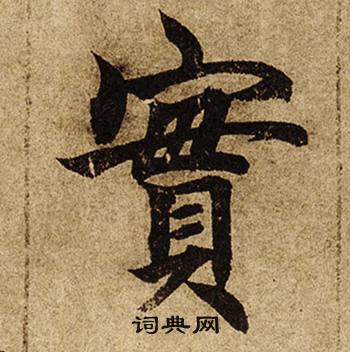 實
词典网